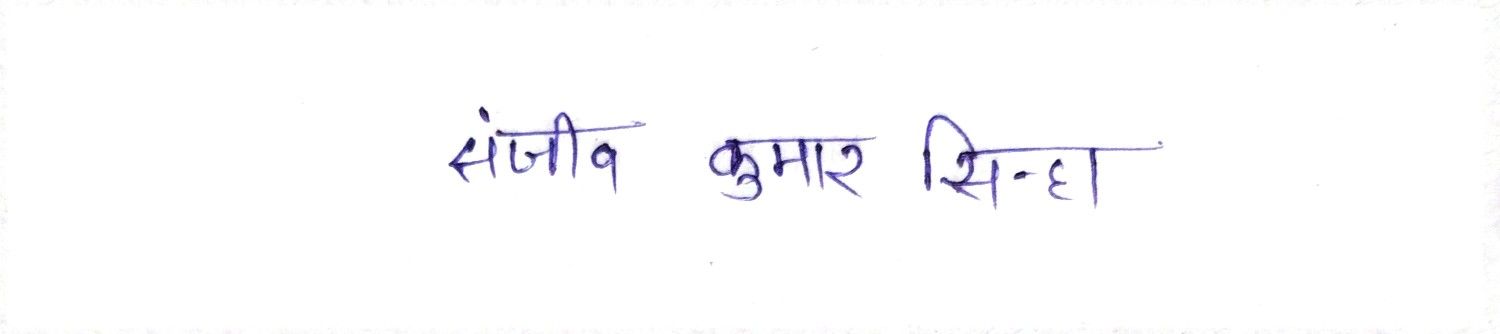 संजीव कुमार सिन्हा